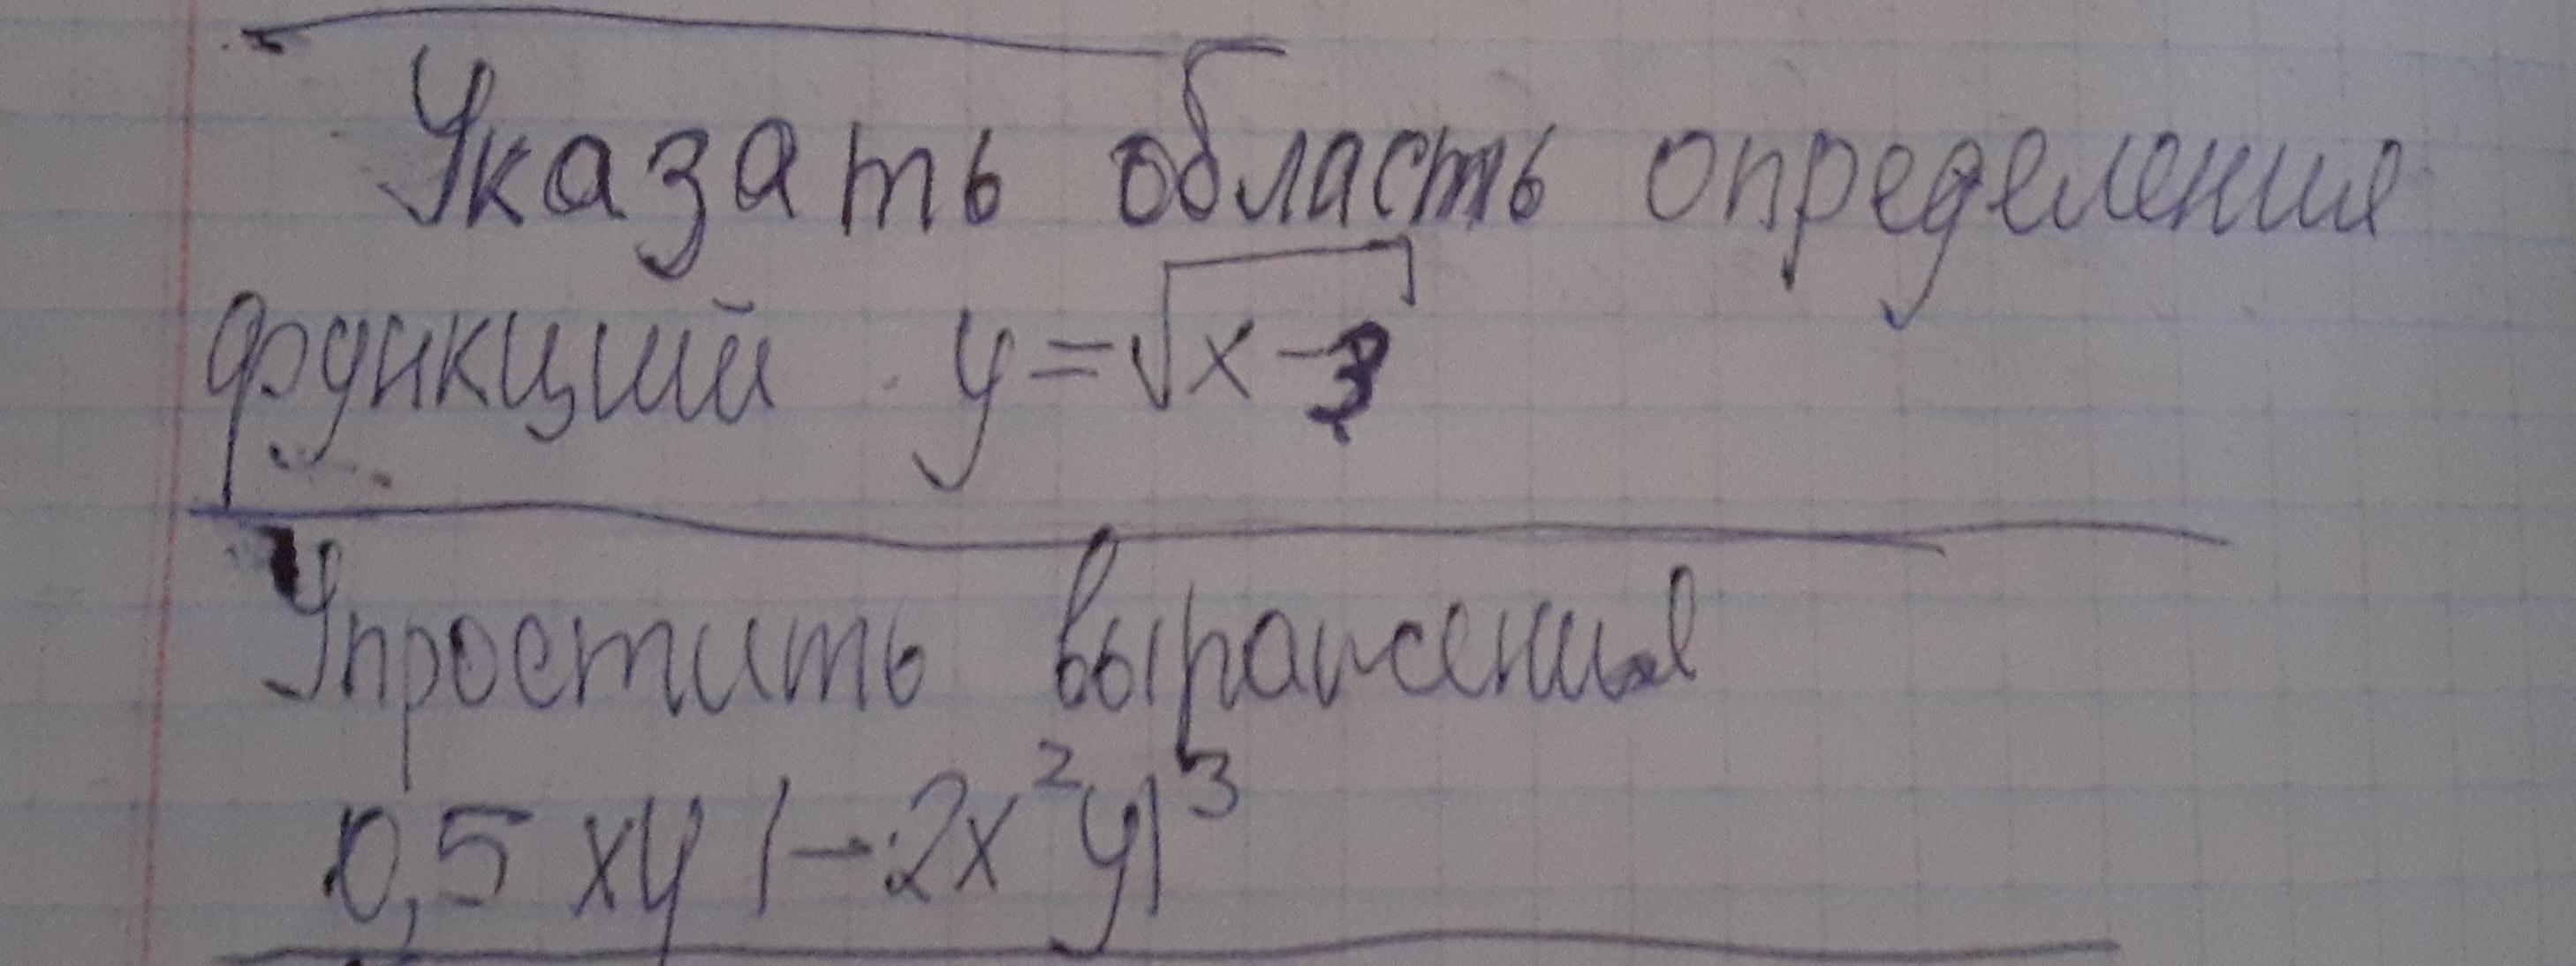 Указать область определения
функций y = √x-3
Упростить выражения
0,5 xy (-2x²y)³